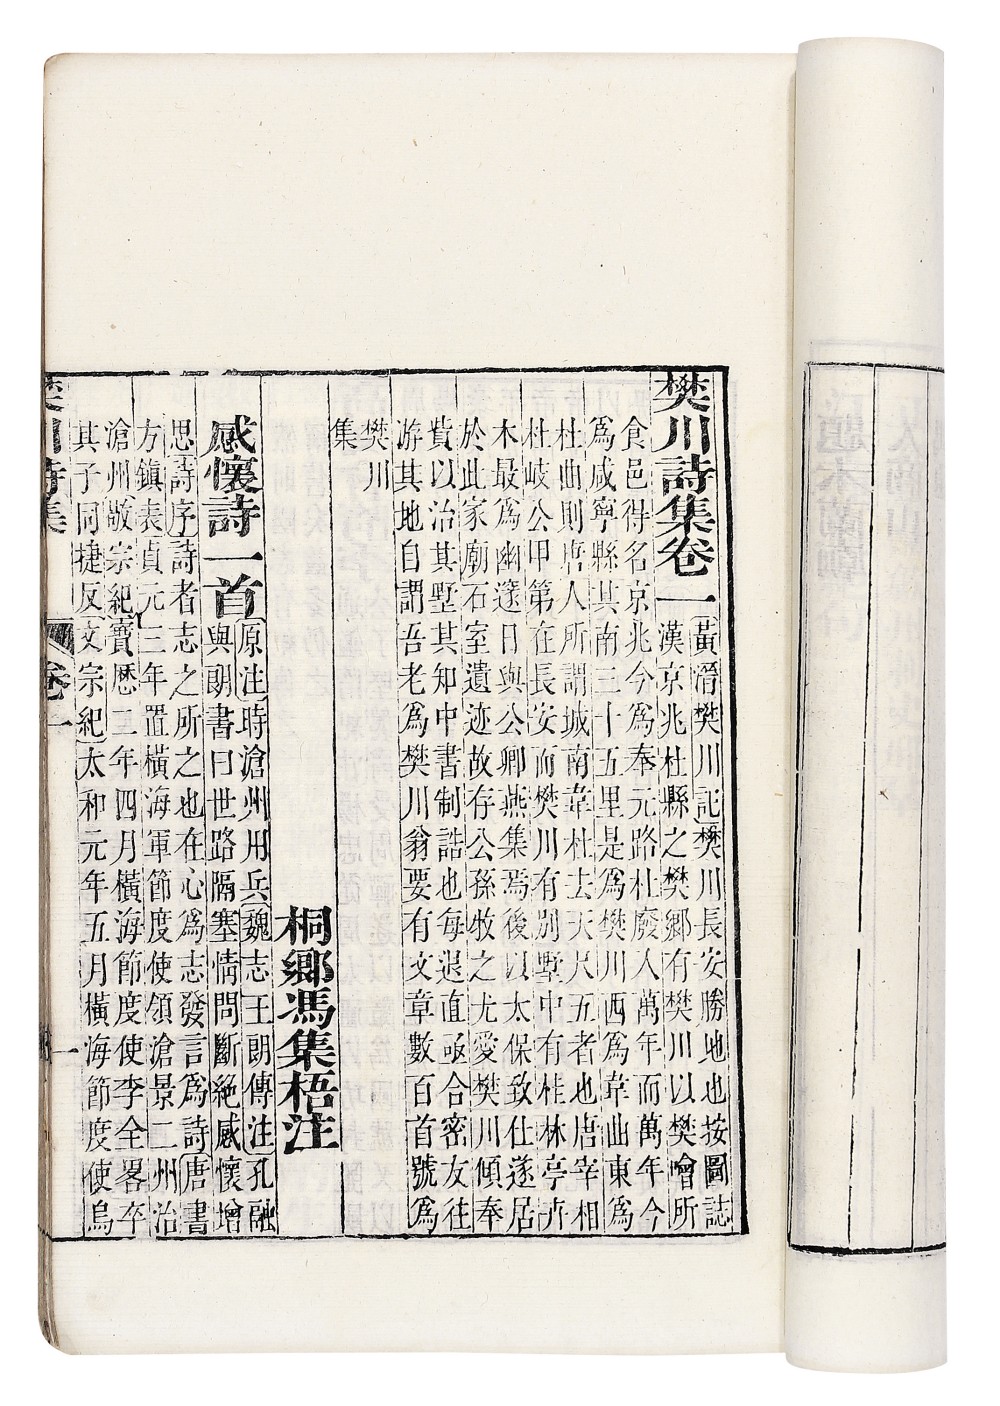 樊川詩集卷一
黃溍樊川記樊川長安勝地也按圖誌
漢京兆杜縣之樊鄉有樊川以樊噲所
食邑得名京兆今爲奉元路杜廢入萬年而萬年今
爲咸寧縣其南三十五里是爲樊川西爲韋曲東爲
杜曲則唐人所謂城南韋杜去天尺五者也唐宰相
杜岐公甲第在長安而樊川有別墅中有桂林亭卉
木最爲幽邃日與公卿燕集焉後以太保致仕遂居
於此家廟石室遺迹故存公孫牧之尤愛樊川傾奉
貲以治其墅其知中書制誥也每退直亟合密友往
游其地自謂吾老爲樊川翁要有文章數百首號爲
樊川
集
桐鄉馮集梧注
感懷詩一首
原注時滄州用兵魏志王朗傳注孔融
與朗書曰世路隔塞情問斷絕感懷增
思詩序詩者志之所之也在心爲志發言爲詩唐書
方鎭表貞元三年置橫海軍節度使領滄景二州治
滄州敬宗紀寶歷二年四月橫海節度使李全畧卒
其子同捷反文宗紀太和元年五月橫海節度使烏
樊川詩集 卷一 一